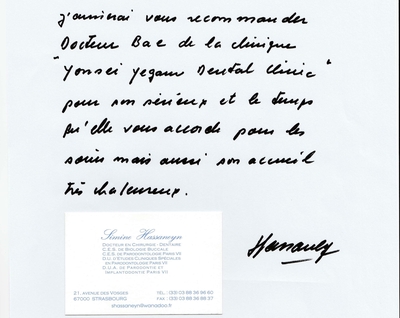 j'aimerai vous recommander
Docteur Bae de la clinique
"Yonsei Yegam Dental Clinic"
pour son sérieux et le temps
qu'elle vous accorde pour les
soins mais aussi son accueil
très chaleureux.
Simine Hassaneyn
DOCTEUR EN CHIRURGIE - DENTAIRE
C.E.S. DE BIOLOGIE BUCCALE
C.E.S. DE PARODONTOLOGIE PARIS VII
D.U. D'ETUDES CLINIQUES SPÉCIALES
EN PARODONTOLOGIE PARIS VII
D.U.A. DE PARODONTIE ET
IMPLANTOLOGIE PARIS VII
21, AVENUE DES VOSGES
67000 STRASBOURG
TÉL. : (33) 03 88 36 98 60
FAX (33) 03 88 36 88 37
shassaneyn@wanadoo.fr